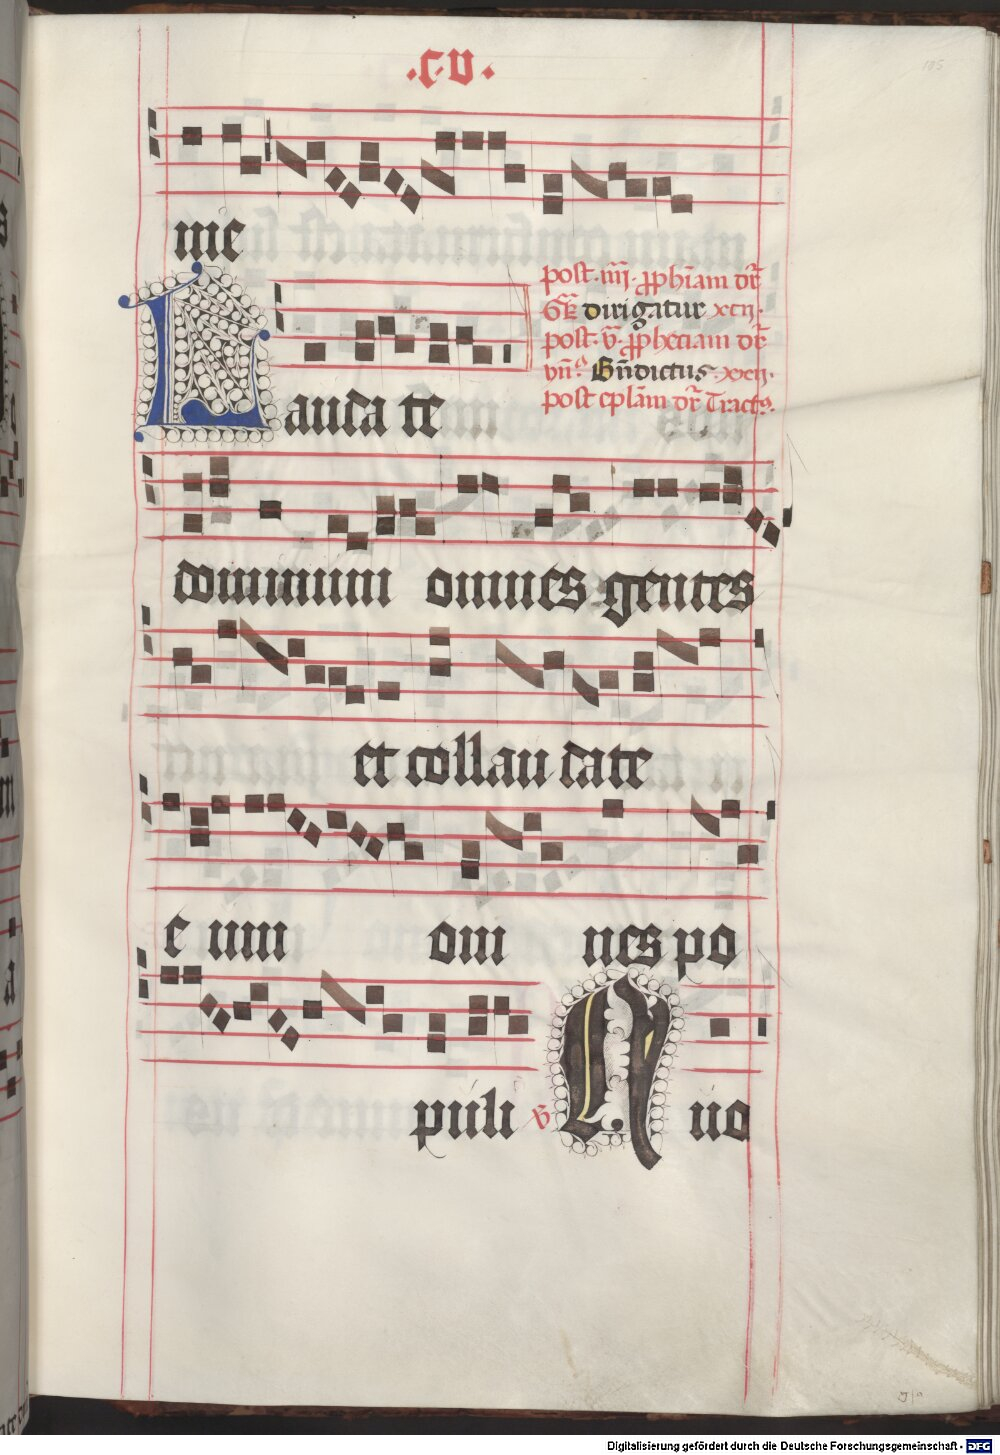 .c.v.
105
me
post .iiij. ꝓphīam dr̄
Gr̄ dirigatur xcij.
post .v. ꝓphetiam dr̄
vn̄s Bn̄dictus .xxij.
post ep̄lam dr̄ Tractꝰ.
Lauda te
dominum omnes gentes
et collau date
e um om nes po
puli ℣ Quo
Digitalisierung gefördert durch die Deutsche Forschungsgemeinschaft - DFG